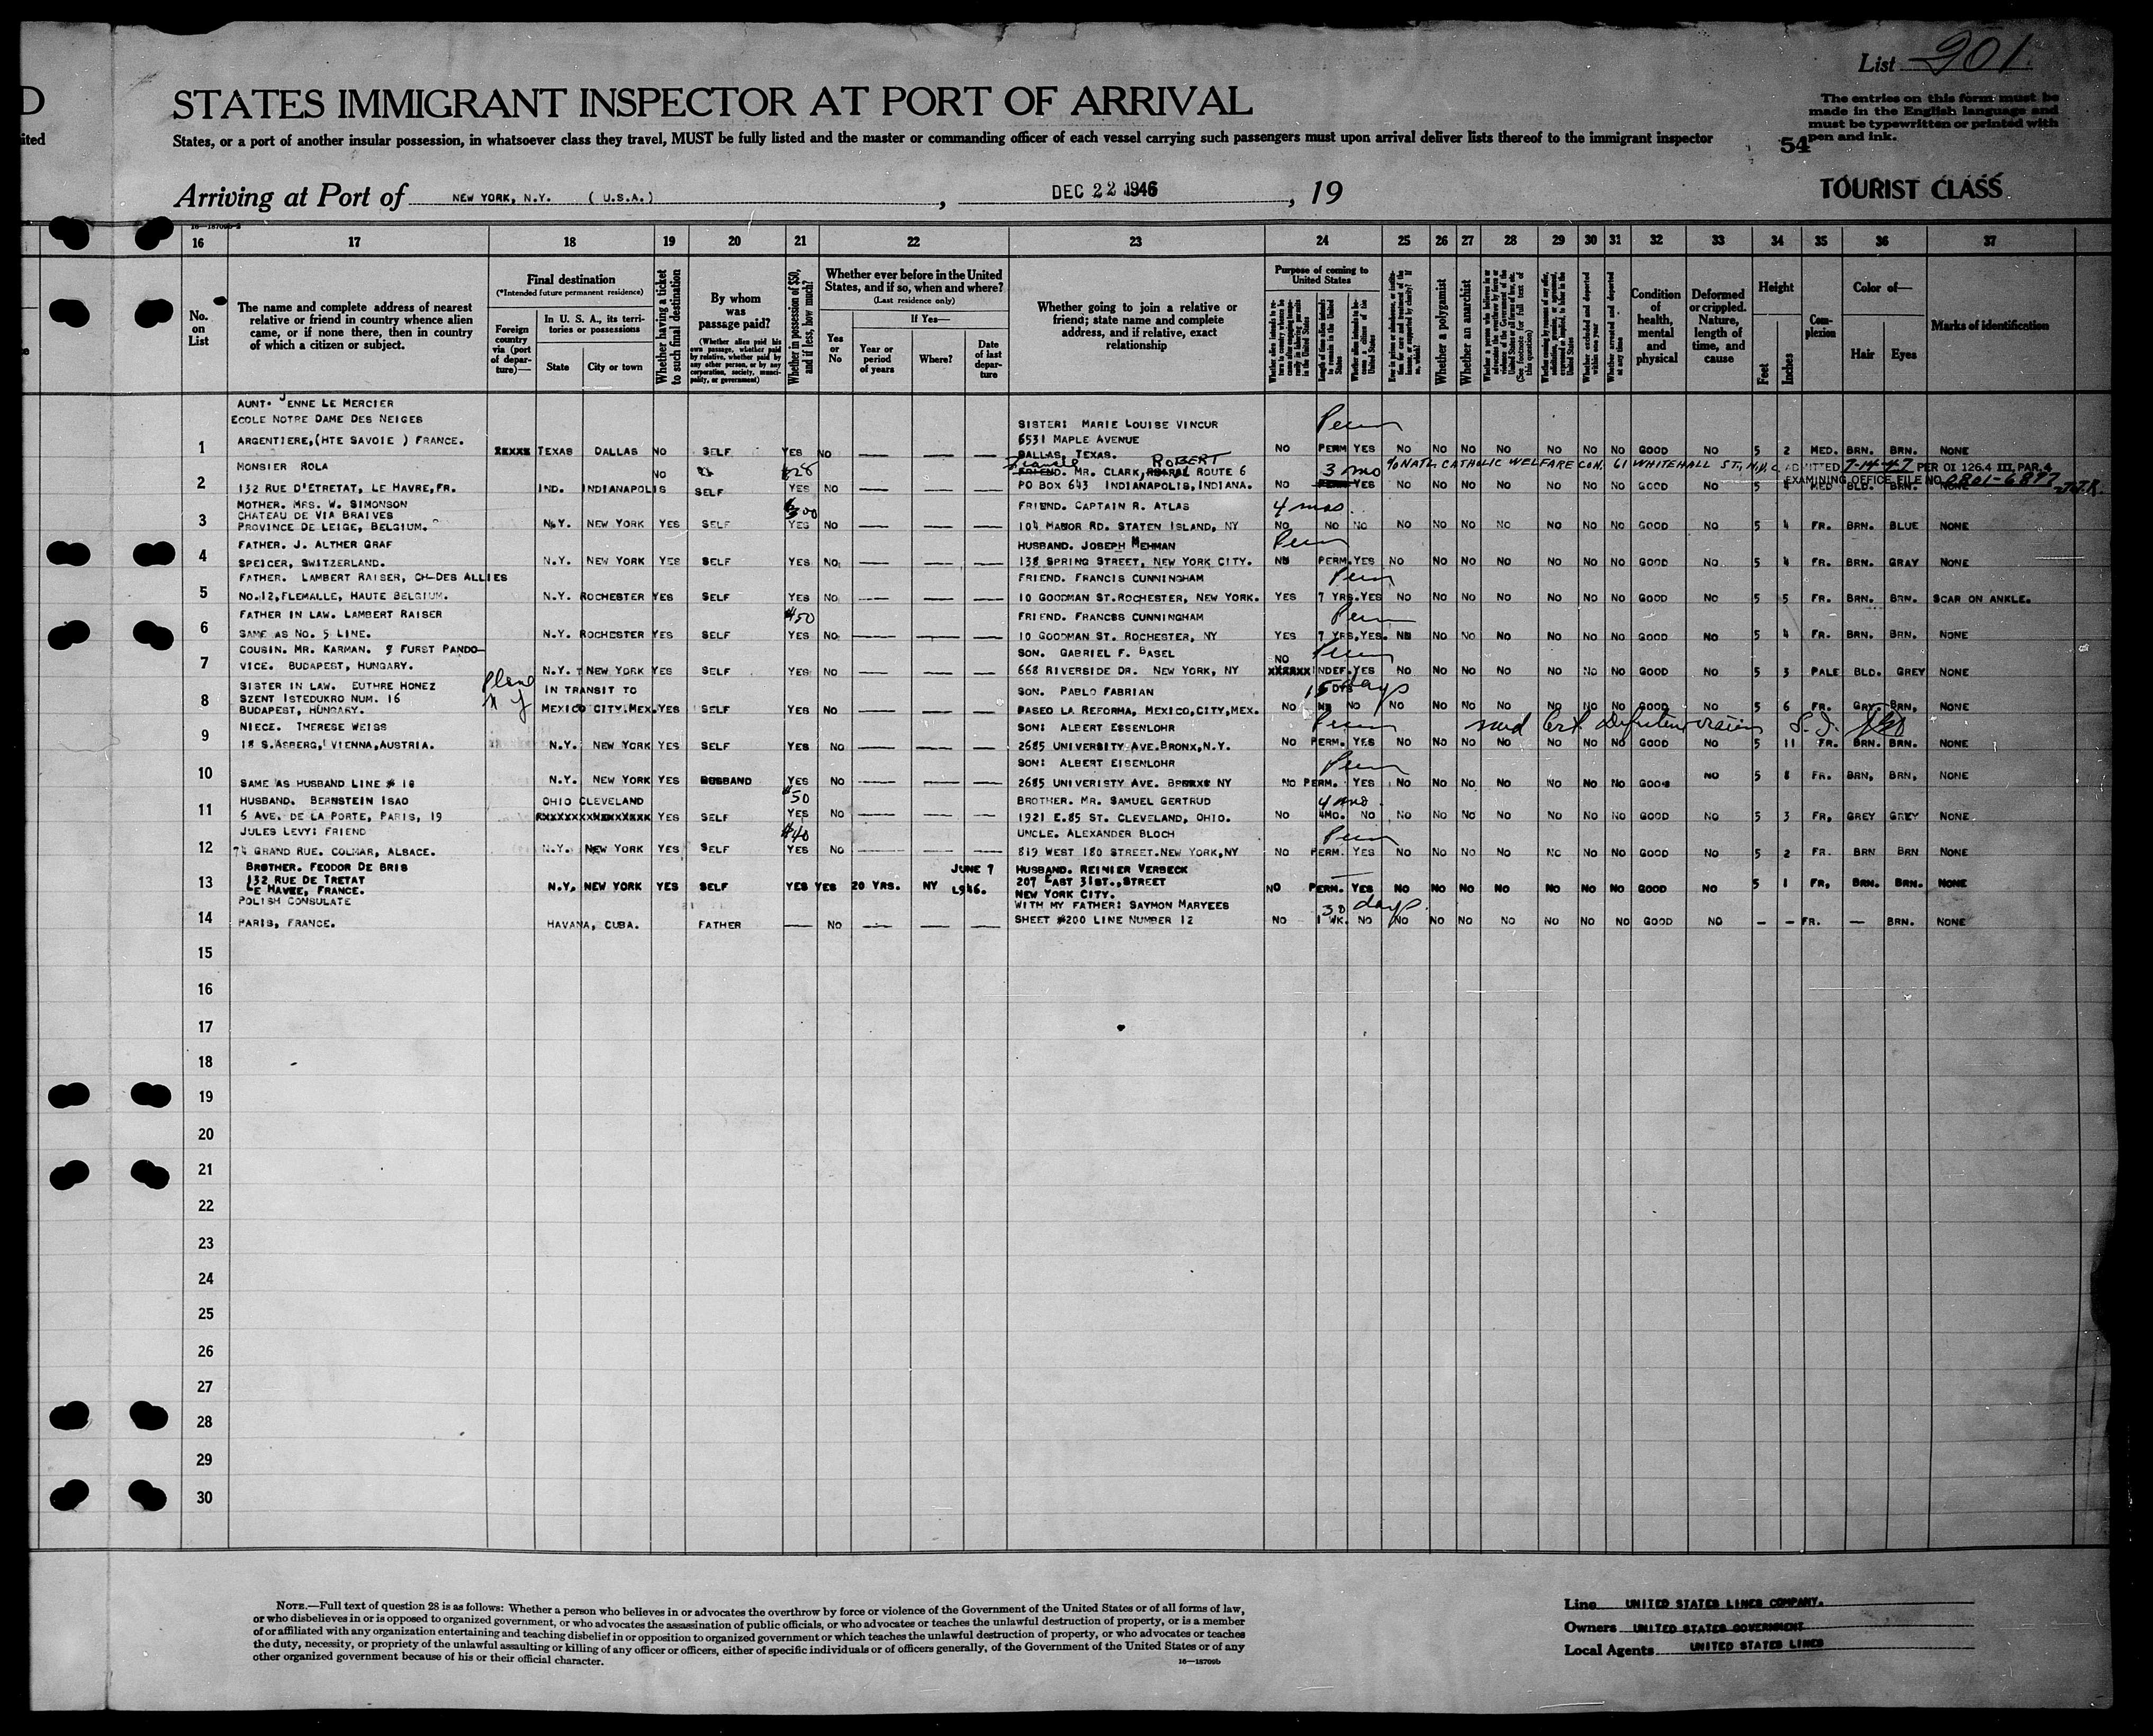 List 201
D
ited
STATES IMMIGRANT INSPECTOR AT PORT OF ARRIVAL
The entries on this form must be
made in the English language and
must be typewritten or printed with
pen and ink.
States, or a port of another insular possession, in whatsoever class they travel, MUST be fully listed and the master or commanding officer of each vessel carrying such passengers must upon arrival deliver lists thereof to the immigrant inspector
54
Arriving at Port of NEW YORK, N.Y. (U.S.A.), DEC 22 1946, 19
TOURIST CLASS
16 17 18 19 20 21 22 23 24 25 26 27 28 29 30 31 32 33 34 35 36 37
No. on List
The name and complete address of nearest
relative or friend in country whence alien
came, or if none there, then in country
of which a citizen or subject.
Final destination
(*Intended future permanent residence)
Foreign country via (port of departure)—
In U. S. A., its territories or possessions
State
City or town
Whether having a ticket to such final destination
By whom was passage paid?
(Whether alien paid his own passage, whether paid by relative, whether paid by any other person, or by any corporation, society, municipality, or government)
Whether in possession of $50, and if less, how much?
Whether ever before in the United States, and if so, when and where?
(Last residence only)
If Yes—
Yes or No
Year or period of years
Where?
Date of last departure
Whether going to join a relative or
friend; state name and complete
address, and if relative, exact
relationship
Purpose of coming to United States
Whether a polygamist
Whether an anarchist
Condition of health, mental and physical
Deformed or crippled. Nature, length of time, and cause
Height
Feet
Inches
Complexion
Color of—
Hair
Eyes
Marks of identification
AUNT. JENNE LE MERCIER
ECOLE NOTRE DAME DES NEIGES
SISTER: MARIE LOUISE VINCUR Perm
6531 MAPLE AVENUE
1 ARGENTIERE,(HTE SAVOIE ) FRANCE. XXXXX TEXAS DALLAS NO SELF YES NO — — — DALLAS, TEXAS. NO PERM YES NO NO NO NO NO NO NO GOOD NO 5 2 MED. BRN. BRN. NONE
MONSIER ROLA NO 28 FRIEND. MR. CLARK, ROBERT ROUTE 6 3 mo c/o NATL CATHOLIC WELFARE CON. 61 WHITEHALL ST., N.Y.C. ADMITTED 7-14-47 PER OI 126.4 III, PAR. 4
EXAMINING OFFICE FILE NO 0801-6897 J.T.K.
2 132 RUE D'ETRETAT, LE HAVRE,FR. IND. INDIANAPOLIS SELF YES NO — — — PO BOX 643 INDIANAPOLIS, INDIANA. NO PERM YES NO NO NO NO NO NO NO GOOD NO 5 4 MED BLD. BRN. NONE
MOTHER. MRS. W. SIMONSON
CHATEAU DE VIA BRAIVES 300 FRIEND. CAPTAIN R. ATLAS 4 mos.
3 PROVINCE DE LEIGE, BELGIUM. N.Y. NEW YORK YES SELF YES NO — — — 104 MANOR RD. STATEN ISLAND, NY NO NO NO NO NO NO NO NO NO NO GOOD NO 5 4 FR. BRN. BLUE NONE
FATHER. J. ALTHER GRAF HUSBAND. JOSEPH MEHMAN Perm
4 SPEICER, SWITZERLAND. N.Y. NEW YORK YES SELF YES NO. — — — 138 SPRING STREET, NEW YORK CITY. NO PERM. YES NO NO NO NO NO NO NO GOOD NO 5 4 FR. BRN. GRAY NONE
FATHER. LAMBERT RAISER, CH-DES ALLIES FRIEND. FRANCIS CUNNINGHAM Perm
5 NO.12,FLEMALLE, HAUTE BELGIUM. N.Y. ROCHESTER YES SELF YES NO — — — 10 GOODMAN ST.ROCHESTER, NEW YORK. YES 7 YRS.YES NO NO NO NO NO NO NO GOOD NO 5 5 FR. BRN. BRN. SCAR ON ANKLE.
FATHER IN LAW. LAMBERT RAISER $50 FRIEND. FRANCES CUNNINGHAM Perm
6 SAME AS NO. 5 LINE. N.Y. ROCHESTER YES SELF YES NO. — — — 10 GOODMAN ST. ROCHESTER, NY YES 7 YRS,YES. NO NO NO NO NO NO NO GOOD NO 5 4 FR. BRN. BRN. NONE
COUSIN. MR. KARMAN. 9 FURST PANDO- SON. GABRIEL F. BASEL NO Perm
7 VICE. BUDAPEST, HUNGARY. N.Y. NEW YORK YES SELF YES NO — — — 668 RIVERSIDE DR. NEW YORK, NY XXXXXX INDEF.YES NO NO NO NO NO NO NO GOOD NO 5 3 PALE BLD. GREY NONE
SISTER IN LAW. EUTHRE HONEZ Plane IN TRANSIT TO SON. PABLO FABRIAN 15 days
SZENT ISTEDUKRO NUM. 16 N Y
8 BUDAPEST, HUNGARY. MEXICO CITY.MEX. YES SELF YES NO — — — PASEO LA REFORMA, MEXICO,CITY,MEX. NO NO NO NO NO NO NO NO NO GOOD NO 5 6 FR. GRY. BRN, NONE
NIECE. THERESE WEISS SON: ALBERT ESSENLOHR Perm med Cert Defective vision S.I.
9 18 S.ASBERG, VIENNA,AUSTRIA. N.Y. NEW YORK YES SELF YES NO — — — 2685 UNIVERSITY AVE.BRONX,N.Y. NO PERM. YES NO NO NO NO NO NO NO GOOD NO 5 11 FR. BRN. BRN. NONE
SON: ALBERT EISENLOHR Perm
10 SAME AS HUSBAND LINE # 10 N.Y. NEW YORK YES HUSBAND YES NO — — — 2685 UNIVERISTY AVE. BRONX NY NO PERM. YES NO NO NO NO NO NO NO GOOD NO 5 8 FR. BRN, BRN, NONE
HUSBAND. BERNSTEIN ISAO OHIO CLEVELAND $50 BROTHER. MR. SAMUEL GERTRUD 4 mo.
11 6 AVE. DE LA PORTE, PARIS, 19 YES SELF YES NO — — — 1921 E.85 ST. CLEVELAND, OHIO. NO 4MO. NO NO NO NO NO NO NO NO GOOD NO 5 3 FR, GREY GREY NONE
JULES LEVY: FRIEND $40 UNCLE. ALEXANDER BLOCH Perm
12 74 GRAND RUE. COLMAR, ALSACE. N.Y. NEW YORK YES SELF YES NO — — — 819 WEST 180 STREET.NEW YORK,NY NO PERM. YES NO NO NO NO NO NO NO GOOD NO 5 2 FR. BRN BRN NONE
BROTHER. FEODOR DE BRIS JUNE 7 HUSBAND. REINIER VERBECK
132 RUE DE TRETAT 207 EAST 31ST.,STREET
13 LE HAVRE, FRANCE. N.Y, NEW YORK YES SELF YES YES 20 YRS. NY L946. NEW YORK CITY. NO PERM. YES NO NO NO NO NO NO NO GOOD NO 5 1 FR, BRN. BRN. NONE
POLISH CONSULATE WITH MY FATHER: SAYMON MARYEES 30 days
14 PARIS, FRANCE. HAVANA, CUBA. FATHER — NO — — — SHEET #200 LINE NUMBER 12 NO 1 WK. NO NO NO NO NO NO NO NO GOOD NO — — FR. — BRN. NONE
15
16
17
18
19
20
21
22
23
24
25
26
27
28
29
30
NOTE.—Full text of question 28 is as follows: Whether a person who believes in or advocates the overthrow by force or violence of the Government of the United States or of all forms of law,
or who disbelieves in or is opposed to organized government, or who advocates the assassination of public officials, or who advocates or teaches the unlawful destruction of property, or is a member
of or affiliated with any organization entertaining and teaching disbelief in or opposition to organized government or which teaches the unlawful destruction of property, or who advocates or teaches
the duty, necessity, or propriety of the unlawful assaulting or killing of any officer or officers, either of specific individuals or of officers generally, of the Government of the United States or of any
other organized government because of his or their official character.
16—18709b
Line UNITED STATES LINES COMPANY.
Owners UNITED STATES GOVERNMENT
Local Agents UNITED STATES LINES